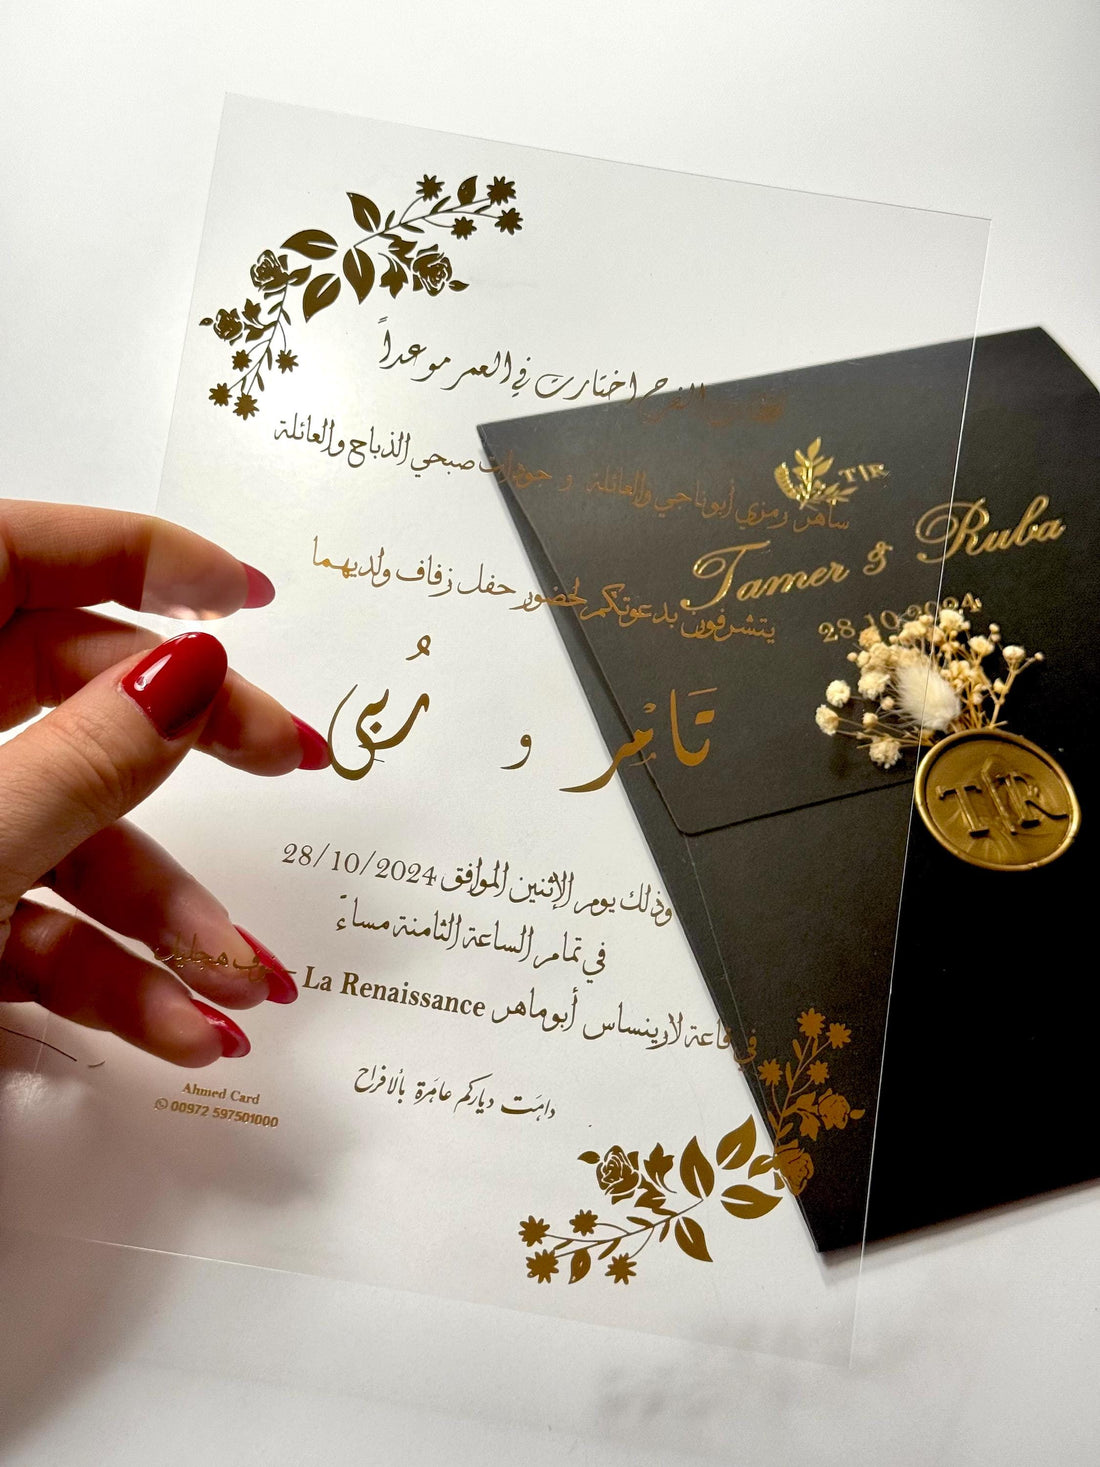 الفرح اختارت في العمر موعداً
ساهر رمزي أبوناجي والعائلة و جودات صبحي الذباح والعائلة
يتشرفون بدعوتكم لحضور حفل زفاف ولديهما
تَامْر و رُبى
وذلك يوم الإثنين الموافق 28/10/2024
في تمام الساعة الثامنة مساءً
في قاعة لارينساس أبوماهر La Renaissance –
دامَت دياركم عامَرة بألافراح
Ahmed Card
00972 597501000
T|R
Tamer & Ruba
28.10.2024
T|R